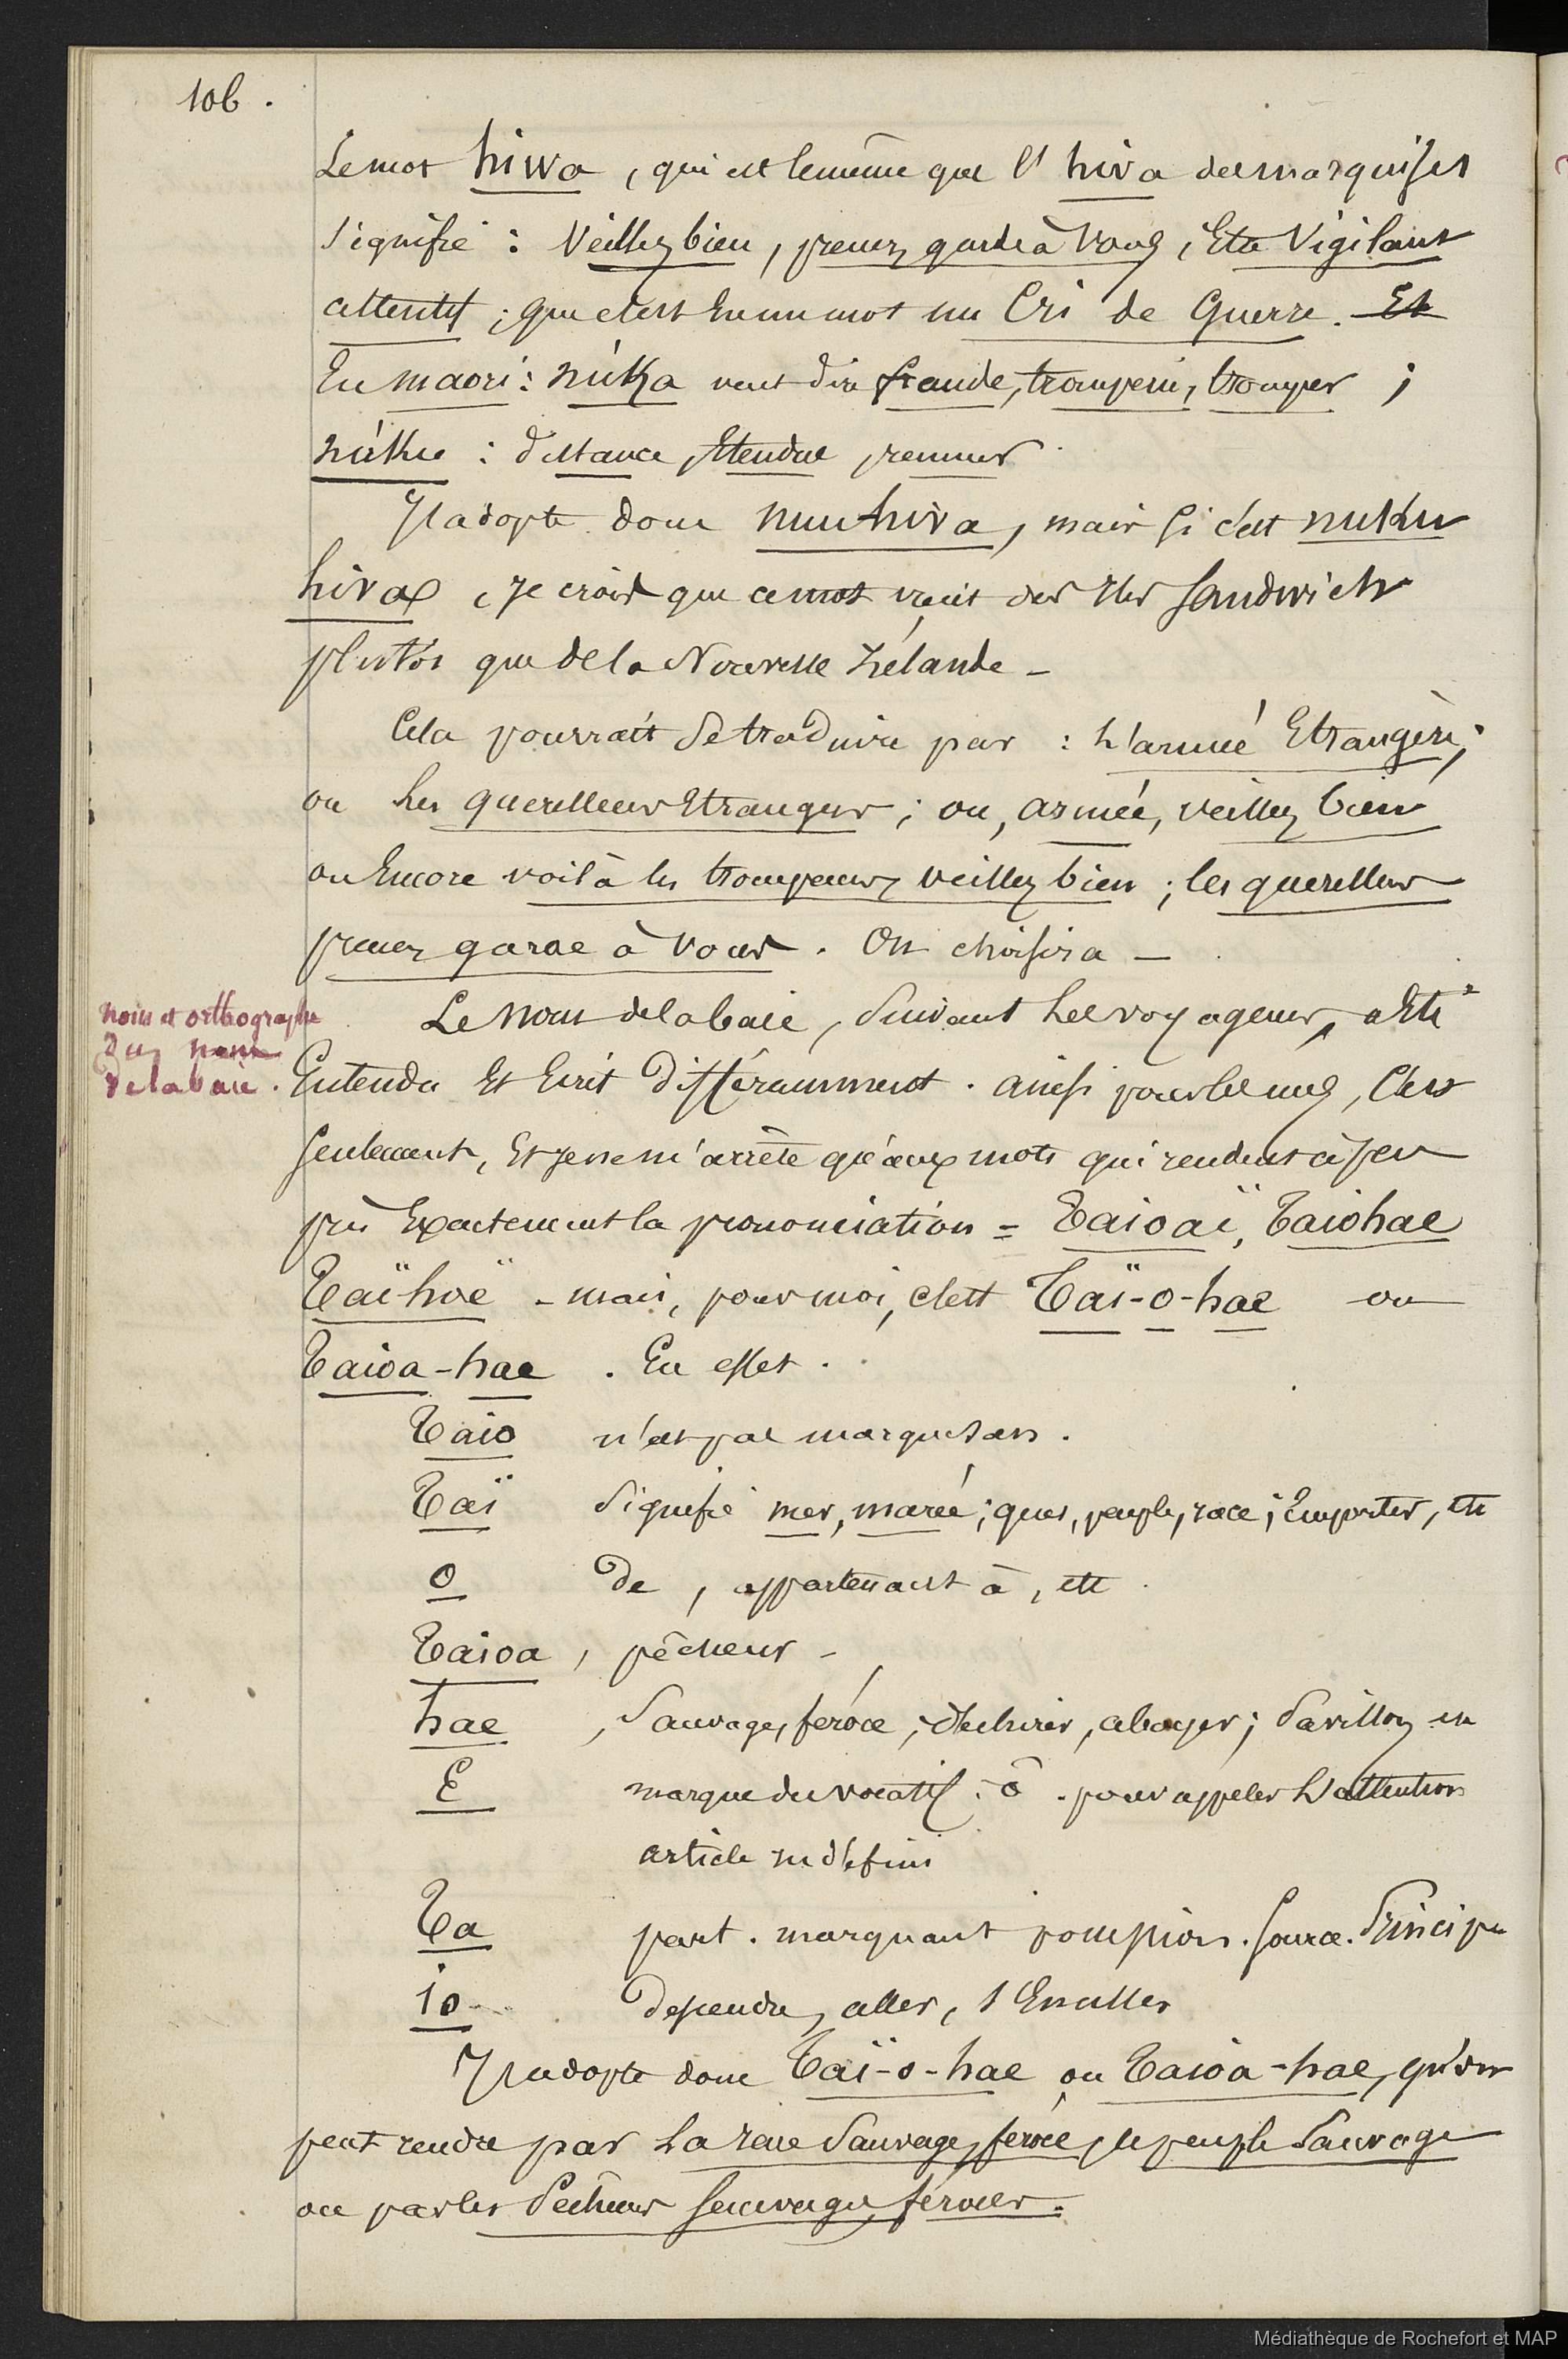 106.
Le mot hiwa, qui est le même que l' hiva des marquises
signifie : Veillez bien, prenez garde à vous, Etre Vigilant
attentif ; que c'est en un mot un Cri de Guerre. Et
En maori : núka veut dire fraude, tromperie, tromper ;
núku : distance, Etendue, remuer.
J'adopte donc nuuhiva, mais si c'est nuku
hiva, je crois que ce mot vient des Iles Sandwich
plutôt que de la Nouvelle Zélande -
Cela pourrait se traduire par : L'armée Etrangère ;
ou Les querelleurs Etrangers ; ou, armée, veillez bien
ou Encore voilà les trompeurs, veillez bien ; les querelleurs
prenez garde à vous. On choisira -
noms et orthographe
du nom
de la baie.
Le nom de la baie, suivant les voyageurs, a Eté
Entendu Et Ecrit différemment. ainsi pour les uns, C'est
seulement, Et je ne m'arrête qu'aux mots qui rendent à peu
près Exactement la prononciation = Taioaï, Taiohae
Taïhoë - mais, pour moi, c'est Taï-o-hae ou
Taioa-hae. En effet.
Taio n'est pas marquesan.
Taï signifie mer, marée ; gens, peuple, race ; Emporter, etc
o de, appartenant à, etc
Taioa, pêcheur -
hae, Sauvage, féroce ; déchirer, aboyer ; Pavillon
E marque du vocatif. ô. pour appeler L'attention
article indéfini
Ta part. marquant possession. Source. Principe
io descendre, aller, s'En aller
J'adopte donc Taï-o-hae ou Taioa-hae, qu'on
peut rendre par La race Sauvage, féroce, le peuple Sauvage
ou par les Pêcheurs Sauvages, féroces.
Médiathèque de Rochefort et MAP